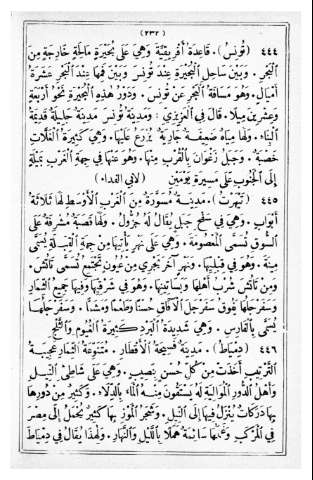 (٢٣٢)
٤٤٤ (تُونُسُ). قَاعِدَةُ أَفْرِيقِيَّةَ وَهِيَ عَلَى بُحَيْرَةٍ مَالِحَةٍ خَارِجَةٍ مِنَ
ٱلْبَحْرِ. وَبَيْنَ سَاحِلِ ٱلْبُحَيْرَةِ عِنْدَ تُونُسَ وَبَيْنَ فَمِهَا عِنْدَ ٱلْبَحْرِ عَشَرَةُ
أَمْيَالٍ. وَهُوَ مَسَافَةُ ٱلْبَحْرِ عَنْ تُونُسَ. وَدَوْرُ هٰذِهِ ٱلْبُحَيْرَةِ نَحْوُ أَرْبَعَةٍ
وَعِشْرِينَ مِيلًا. قَالَ فِي ٱلْعَزِيزِيِّ: وَمَدِينَةُ تُونُسَ مَدِينَةٌ جَلِيلَةٌ قَدِيمَةُ
ٱلْبِنَاءِ. وَلَهَا مِيَاهٌ ضَعِيفَةٌ جَارِيَةٌ يُزْرَعُ عَلَيْهَا. وَهِيَ كَثِيرَةُ ٱلْغَلَّاتِ
خَصْبَةٌ. وَجَبَلُ زَغْوَانَ بِٱلْقُرْبِ مِنْهَا. وَهُوَ عَنْهَا فِي جِهَةِ ٱلْغَرْبِ بِمَيْلَةٍ
إِلَى ٱلْجَنُوبِ عَلَى مَسِيرَةِ يَوْمَيْنِ (لابي الفداء)
٤٤٥ (تِيهَرْتُ). مَدِينَةٌ مُسَوَّرَةٌ مِنَ ٱلْغَرْبِ ٱلْأَوْسَطِ لَهَا ثَلَاثَةُ
أَبْوَابٍ. وَهِيَ فِي سَفْحِ جَبَلٍ يُقَالُ لَهُ جُزُولُ. وَلَهَا قَصَبَةٌ مُشْرِفَةٌ عَلَى
ٱلسُّوقِ تُسَمَّى ٱلْمَعْصُومَةَ. وَهِيَ عَلَى نَهْرٍ يَأْتِيهَا مِنْ جِهَةِ ٱلْقِبْلَةِ يُسَمَّى
مِينَةَ. وَهُوَ فِي قِبْلِيِّهَا. وَنَهْرٌ آخَرُ يَجْرِي مِنْ عُيُونٍ تَجْتَمِعُ تُسَمَّى تَاتَشَ.
وَمِنْ تَاتَشَ شُرْبُ أَهْلِهَا وَبَسَاتِينِهَا. وَهُوَ فِي شَرْقِيِّهَا وَفِيهَا جَمِيعُ ٱلثِّمَارِ
وَسَفَرْجَلُهَا يَفُوقُ سَفَرْجَلَ ٱلْآفَاقِ حُسْنًا وَطَعْمًا وَمَشَمًّا. وَسَفَرْجَلُهَا
يُسَمَّى بِٱلْفَارِسِ. وَهِيَ شَدِيدَةُ ٱلْبَرْدِ كَثِيرَةُ ٱلْغُيُومِ وَٱلثَّلْجِ
٤٤٦ (دِمْيَاطُ). مَدِينَةٌ فَسِيحَةُ ٱلْأَقْطَارِ. مُتَنَوِّعَةُ ٱلثِّمَارِ عَجِيبَةُ
ٱلتَّرْتِيبِ أَخَذَتْ مِنْ كُلِّ حُسْنٍ بِنَصِيبٍ. وَهِيَ عَلَى شَاطِئِ ٱلنِّيلِ.
وَأَهْلُ ٱلدُّورِ ٱلْمُوَالِيَةِ لَهُ يَسْتَقُونَ مِنْهُ ٱلْمَاءَ بِٱلدِّلَاءِ. وَكَثِيرٌ مِنْ دُورِهَا
بِهَا دَرَكَاتٌ يُنْزَلُ فِيهَا إِلَى ٱلنِّيلِ. وَشَجَرُ ٱلْمَوْزِ بِهَا كَثِيرٌ يُحْمَلُ إِلَى مِصْرَ
فِي ٱلْمَرَاكِبِ. وَغَنَمُهَا سَائِمَةٌ هَمَلًا بِٱللَّيْلِ وَٱلنَّهَارِ. وَلِهٰذَا يُقَالُ فِي دِمْيَاطَ